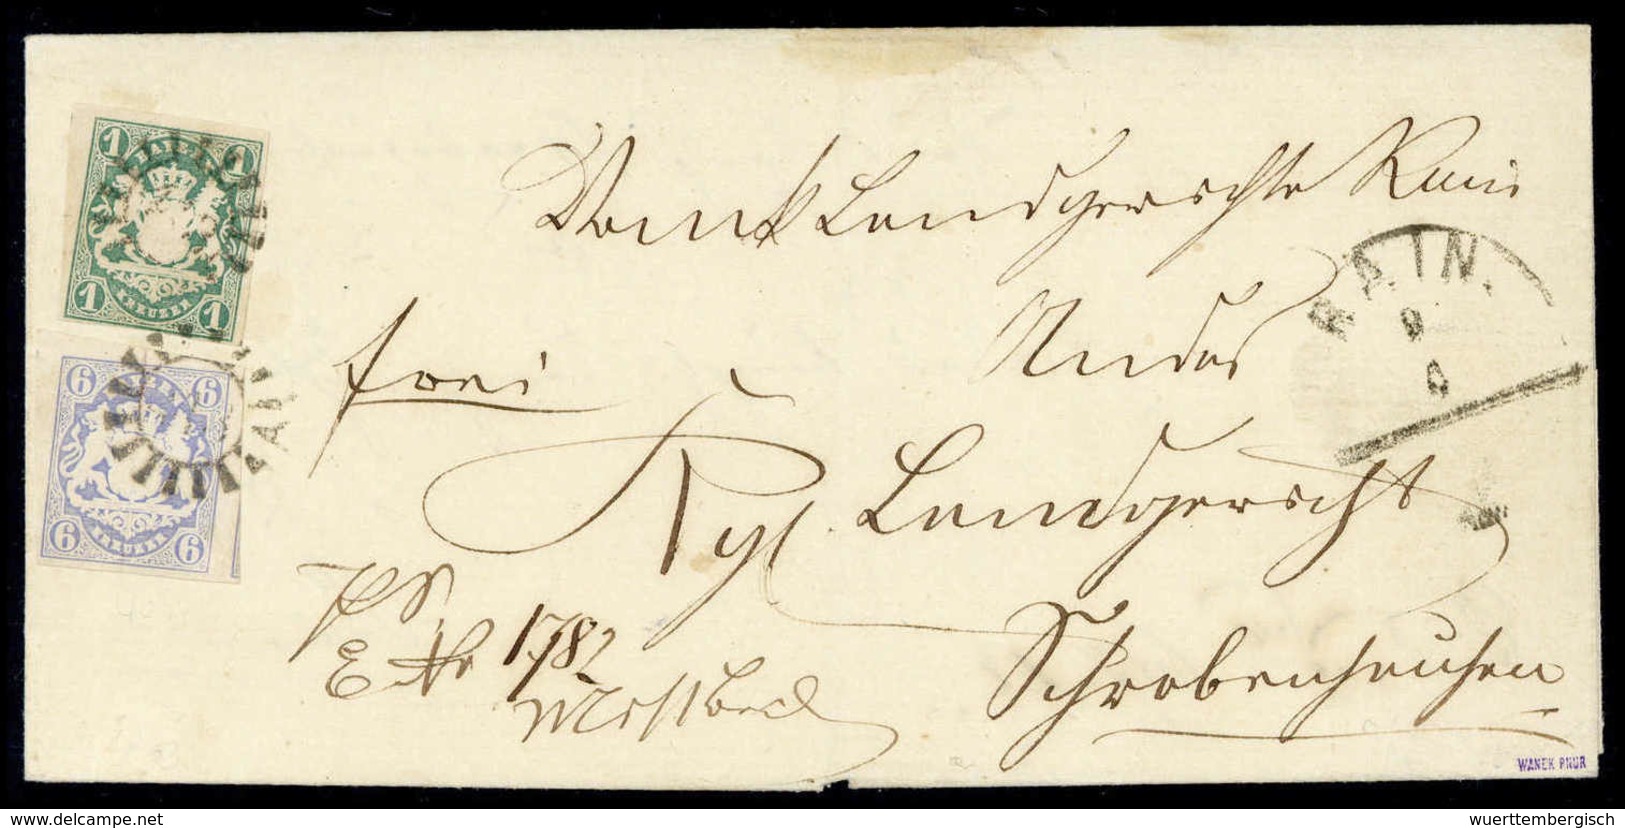 1 BAYERN 1
1 KREUZER 1
6 BAYERN 6
6 KREUZER 6
Vom k Landgerichte Rain
RAIN.
9
4
An das
frei
Kgl Landgericht
E No 1782
Schrobenhausen
WANEK PHUR
www.delcampe.net
wuerttembergisch